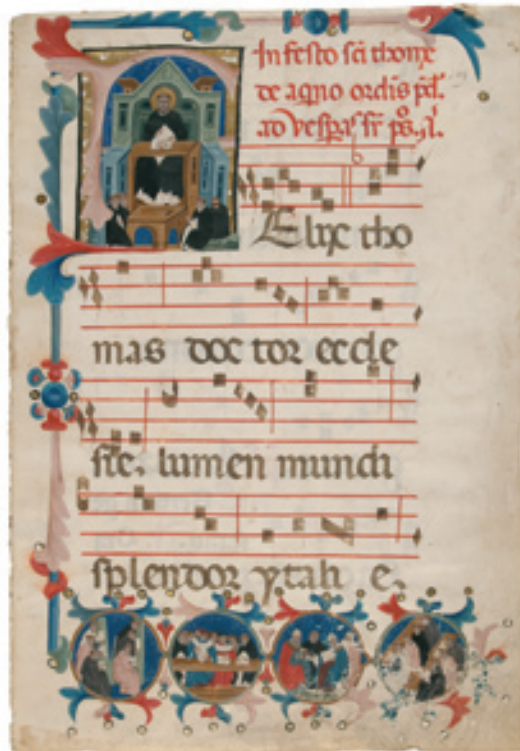 In festo sci thome
de aqno ordis pd.
ad vesperas sr ps. a.
Elix tho
mas doc tor eccle
sie. lumen mundi
splendor ytali e.